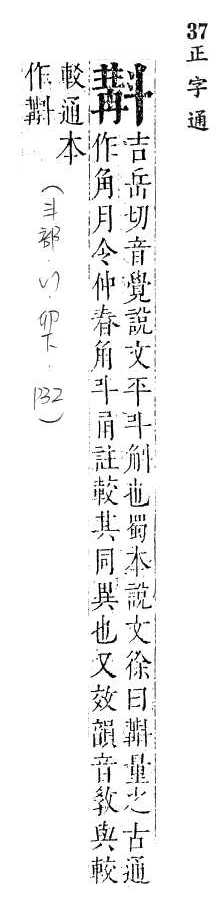 37 正字通
斠 吉岳切音覺說文平斗斛也蜀本說文徐曰斠量之古通
作角月令仲春角斗甬註較其同異也又效韻音敎與較
較通本
作斠
（斗部・卯下・132）